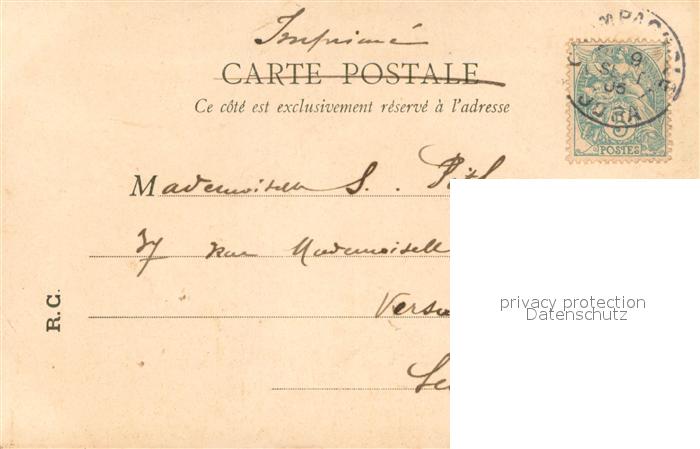 Imprimé
CARTE POSTALE
Ce côté est exclusivement réservé à l'adresse
Mademoiselle S.
37 rue Mademoiselle
R.C.
5
POSTES
JURA
privacy protection
Datenschutz